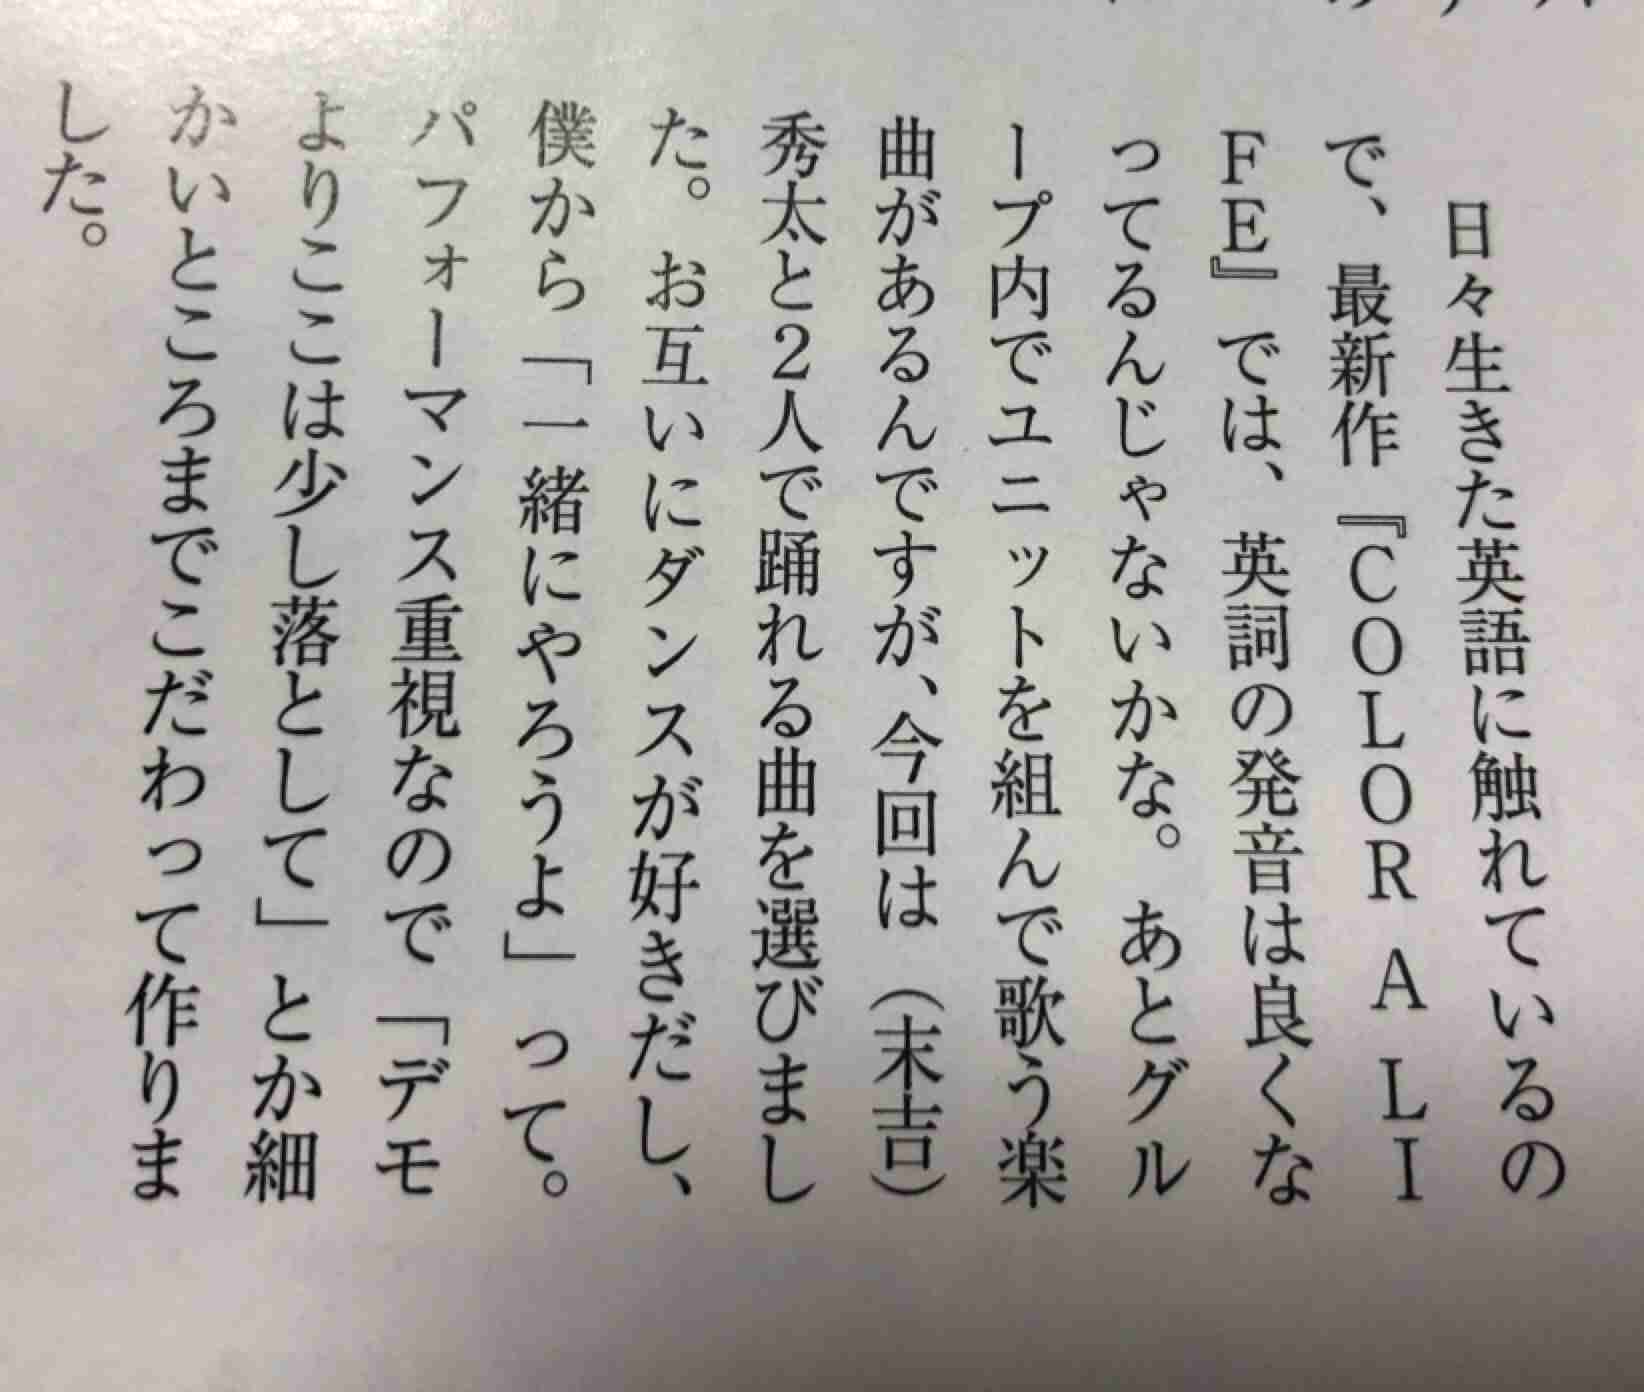 日々生きた英語に触れているの
で、最新作『COLOR A LI
FE』では、英詞の発音は良くな
ってるんじゃないかな。あとグル
ープ内でユニットを組んで歌う楽
曲があるんですが、今回は（末吉）
秀太と2人で踊れる曲を選びまし
た。お互いにダンスが好きだし、
僕から「一緒にやろうよ」って。
パフォーマンス重視なので「デモ
よりここは少し落として」とか細
かいところまでこだわって作りま
した。